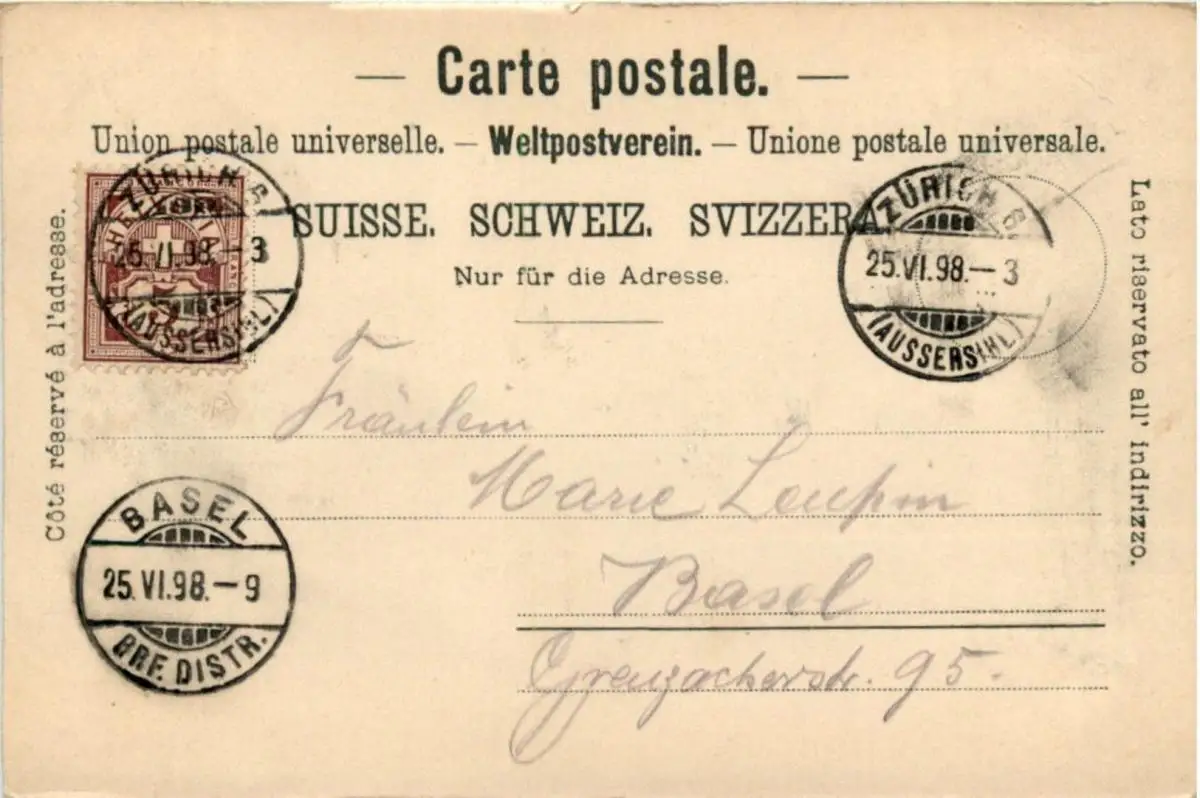 — Carte postale. —
Union postale universelle. — Weltpostverein. — Unione postale universale.
SUISSE. SCHWEIZ. SVIZZERA.
Nur für die Adresse.
Côté réservé à l'adresse.
Lato riservato all' indirizzo.
HELVETIA
5
ZÜRICH 6
25.VI.98.—3
(AUSSERSIHL)
ZÜRICH 6
25.VI.98.—3
(AUSSERSIHL)
Fräulein
Marie Leupin
Basel
Grenzacherstr. 95.
BASEL
25.VI.98.—9
BRF. DISTR.